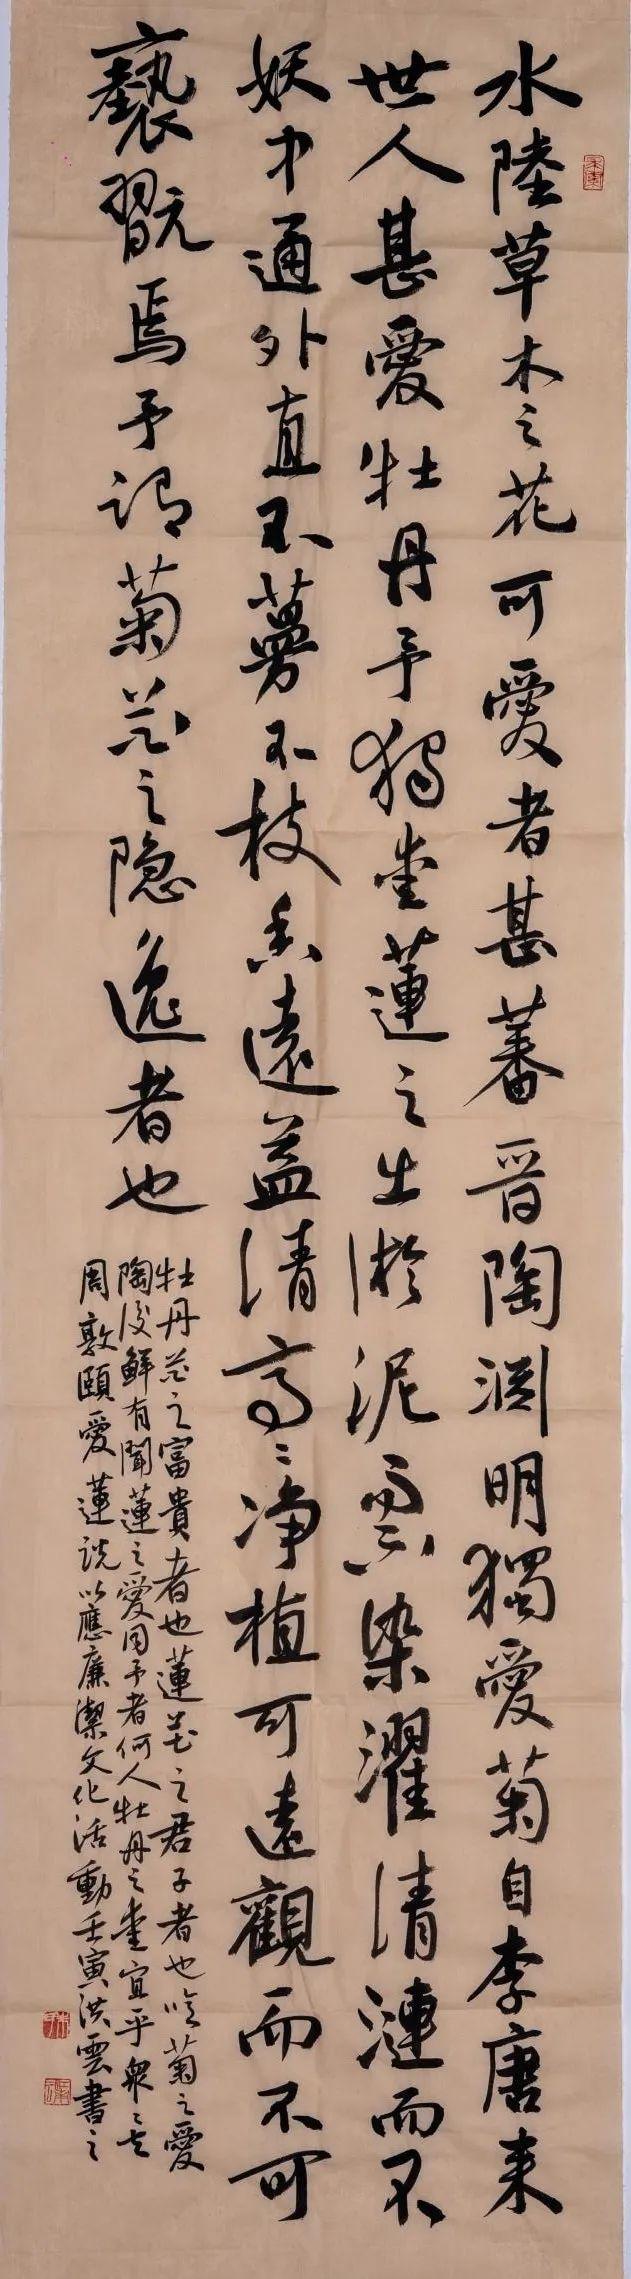 水陸草木之花可愛者甚蕃晋陶淵明獨愛菊自李唐来
世人甚愛牡丹予獨愛蓮之出淤泥而不染濯清漣而不
妖中通外直不蔓不枝香遠益清亭亭净植可遠觀而不可
褻翫焉予謂菊花之隐逸者也
牡丹花之富貴者也蓮花之君子者也噫菊之愛
陶後鮮有聞蓮之愛同予者何人牡丹之愛宜乎衆矣
周敦頤愛蓮説以應廉潔文化活動壬寅洪雲書之